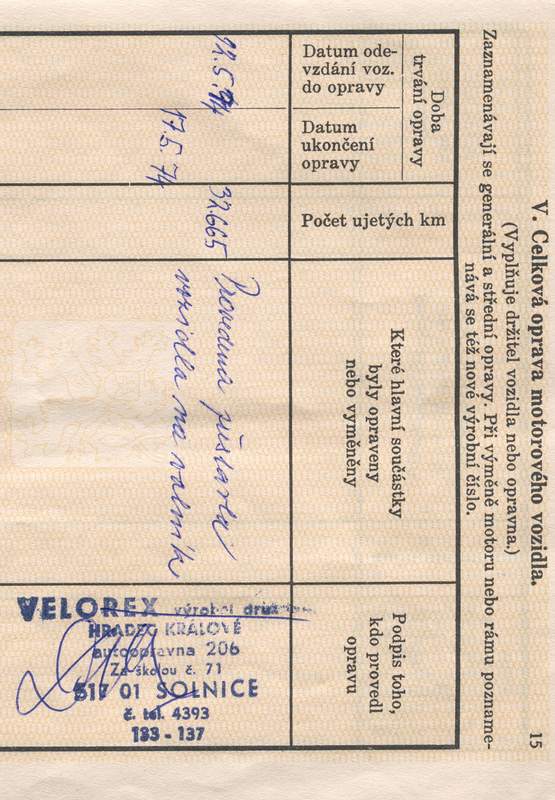 15
V. Celková oprava motorového vozidla.
(Vyplňuje držitel vozidla nebo opravna.)
Zaznamenávají se generální a střední opravy. Při výměně motoru nebo rámu pozname-
nává se též nové výrobní číslo.
Doba
trvání opravy
Datum ode-
vzdání voz.
do opravy
Datum
ukončení
opravy
Počet ujetých km
Které hlavní součástky
byly opraveny
nebo vyměněny
Podpis toho,
kdo provedl
opravu
17.5.74
32.665
Provedena přestavba
vozidla na valník
VELOREX výrobní druž
HRADEC KRÁLOVÉ
autoopravna 206
Za školou č. 71
517 01 SOLNICE
č. tel. 4393
133 - 137